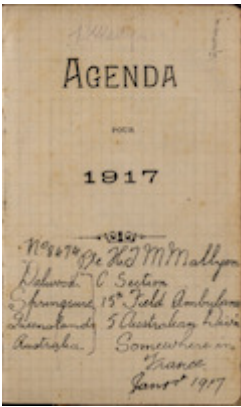 AGENDA
POUR
1917
No 8694 Pte H J M Mallyon
Delwood C Section
Springsure 15th Field Ambulance
Queensland 5 Australian Divis
Australia Somewhere in
France
1917